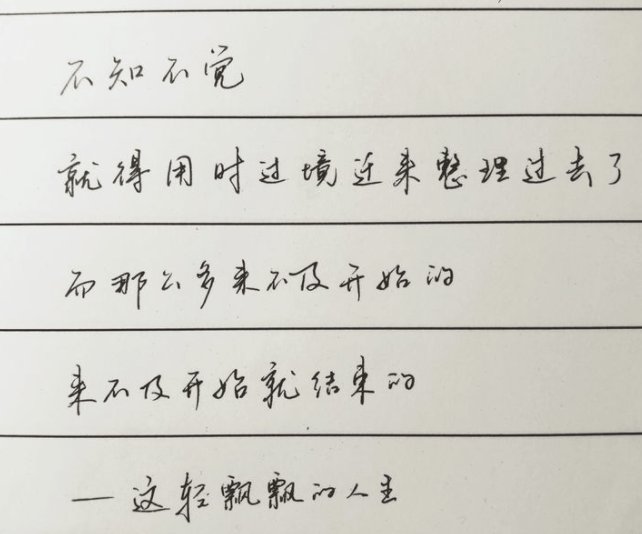 不知不觉
就得用时过境迁来整理过去了
而那么多来不及开始的
来不及开始就结束的
—这轻飘飘的人生